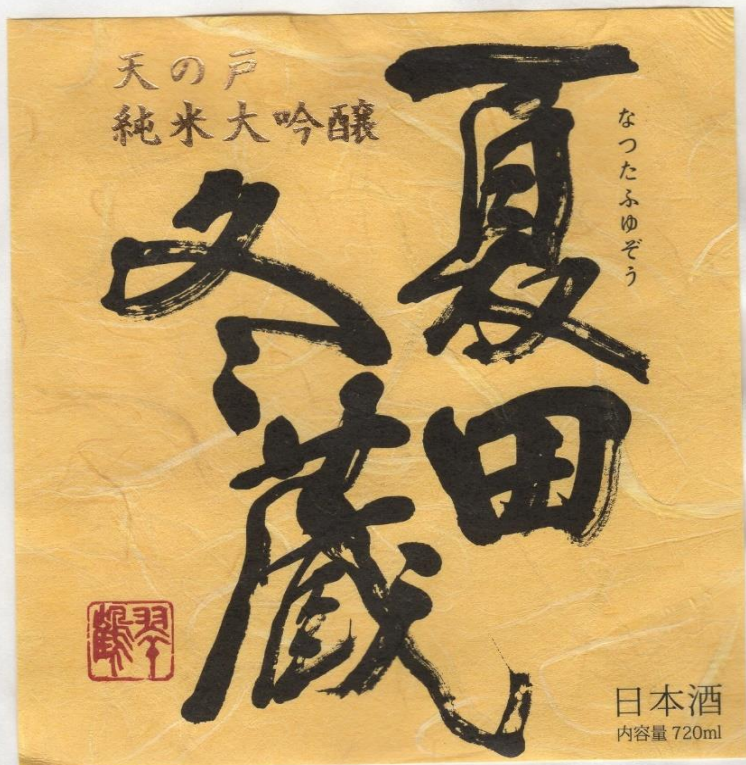 天の戸
純米大吟醸
夏田
冬蔵
なつたふゆぞう
日本酒
内容量 720ml